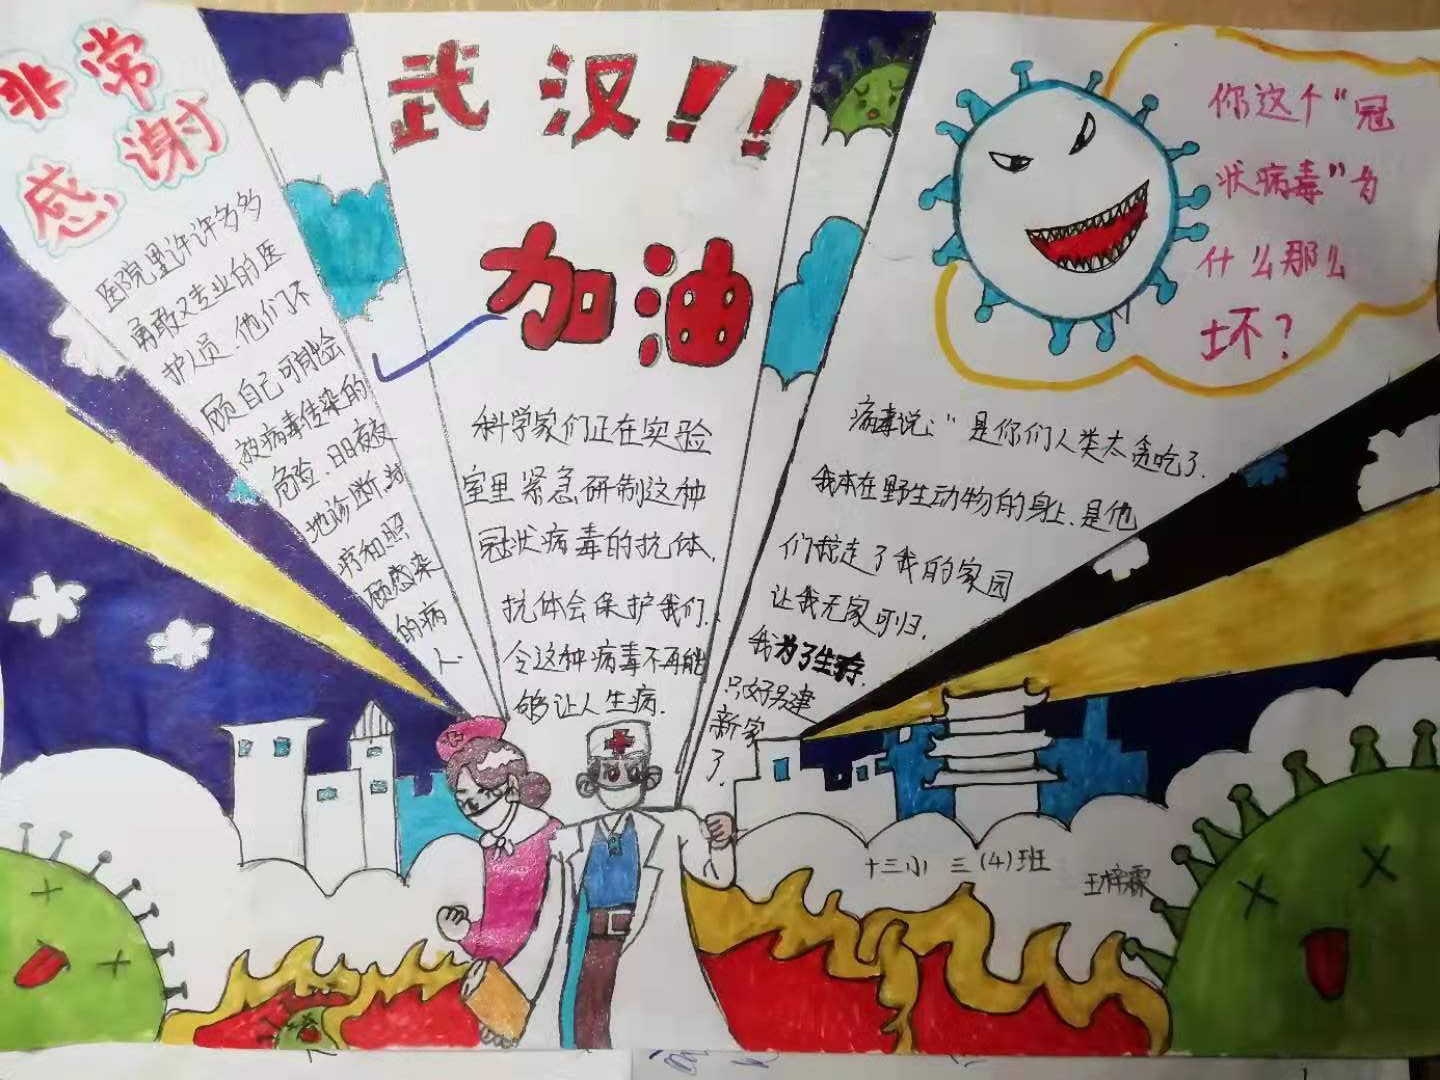 非常
感谢
医院里许许多多
勇敢又专业的医
护人员、他们不
顾自己可能会
被病毒传染的
危险、日日夜夜
地诊断、治
疗和照
顾感染
的病
人.
武汉!!
加油
科学家们正在实验
室里紧急研制这种
冠状病毒的抗体.
抗体会保护我们.
令这种病毒不再能
够让人生病.
你这个“冠
状病毒”为
什么那么
坏?
病毒说:“是你们人类太贪吃了.
我本在野生动物的身上.是他
们掠走了我的家园
让我无家可归.
我为了生存.
只好另建
新家
了.
十三小 三(4)班